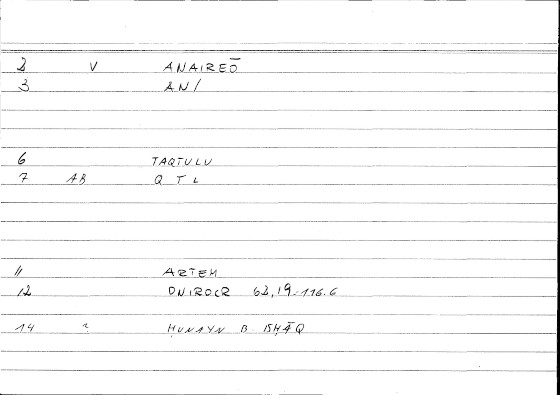 2 V ANAIREŌ
3 AN/
6 TAQTULU
7 AB Q T L
11 ARTEM
12 ONIROCR 62,19-116.6
14 ? ḤUNAYN B. ISḤĀQ